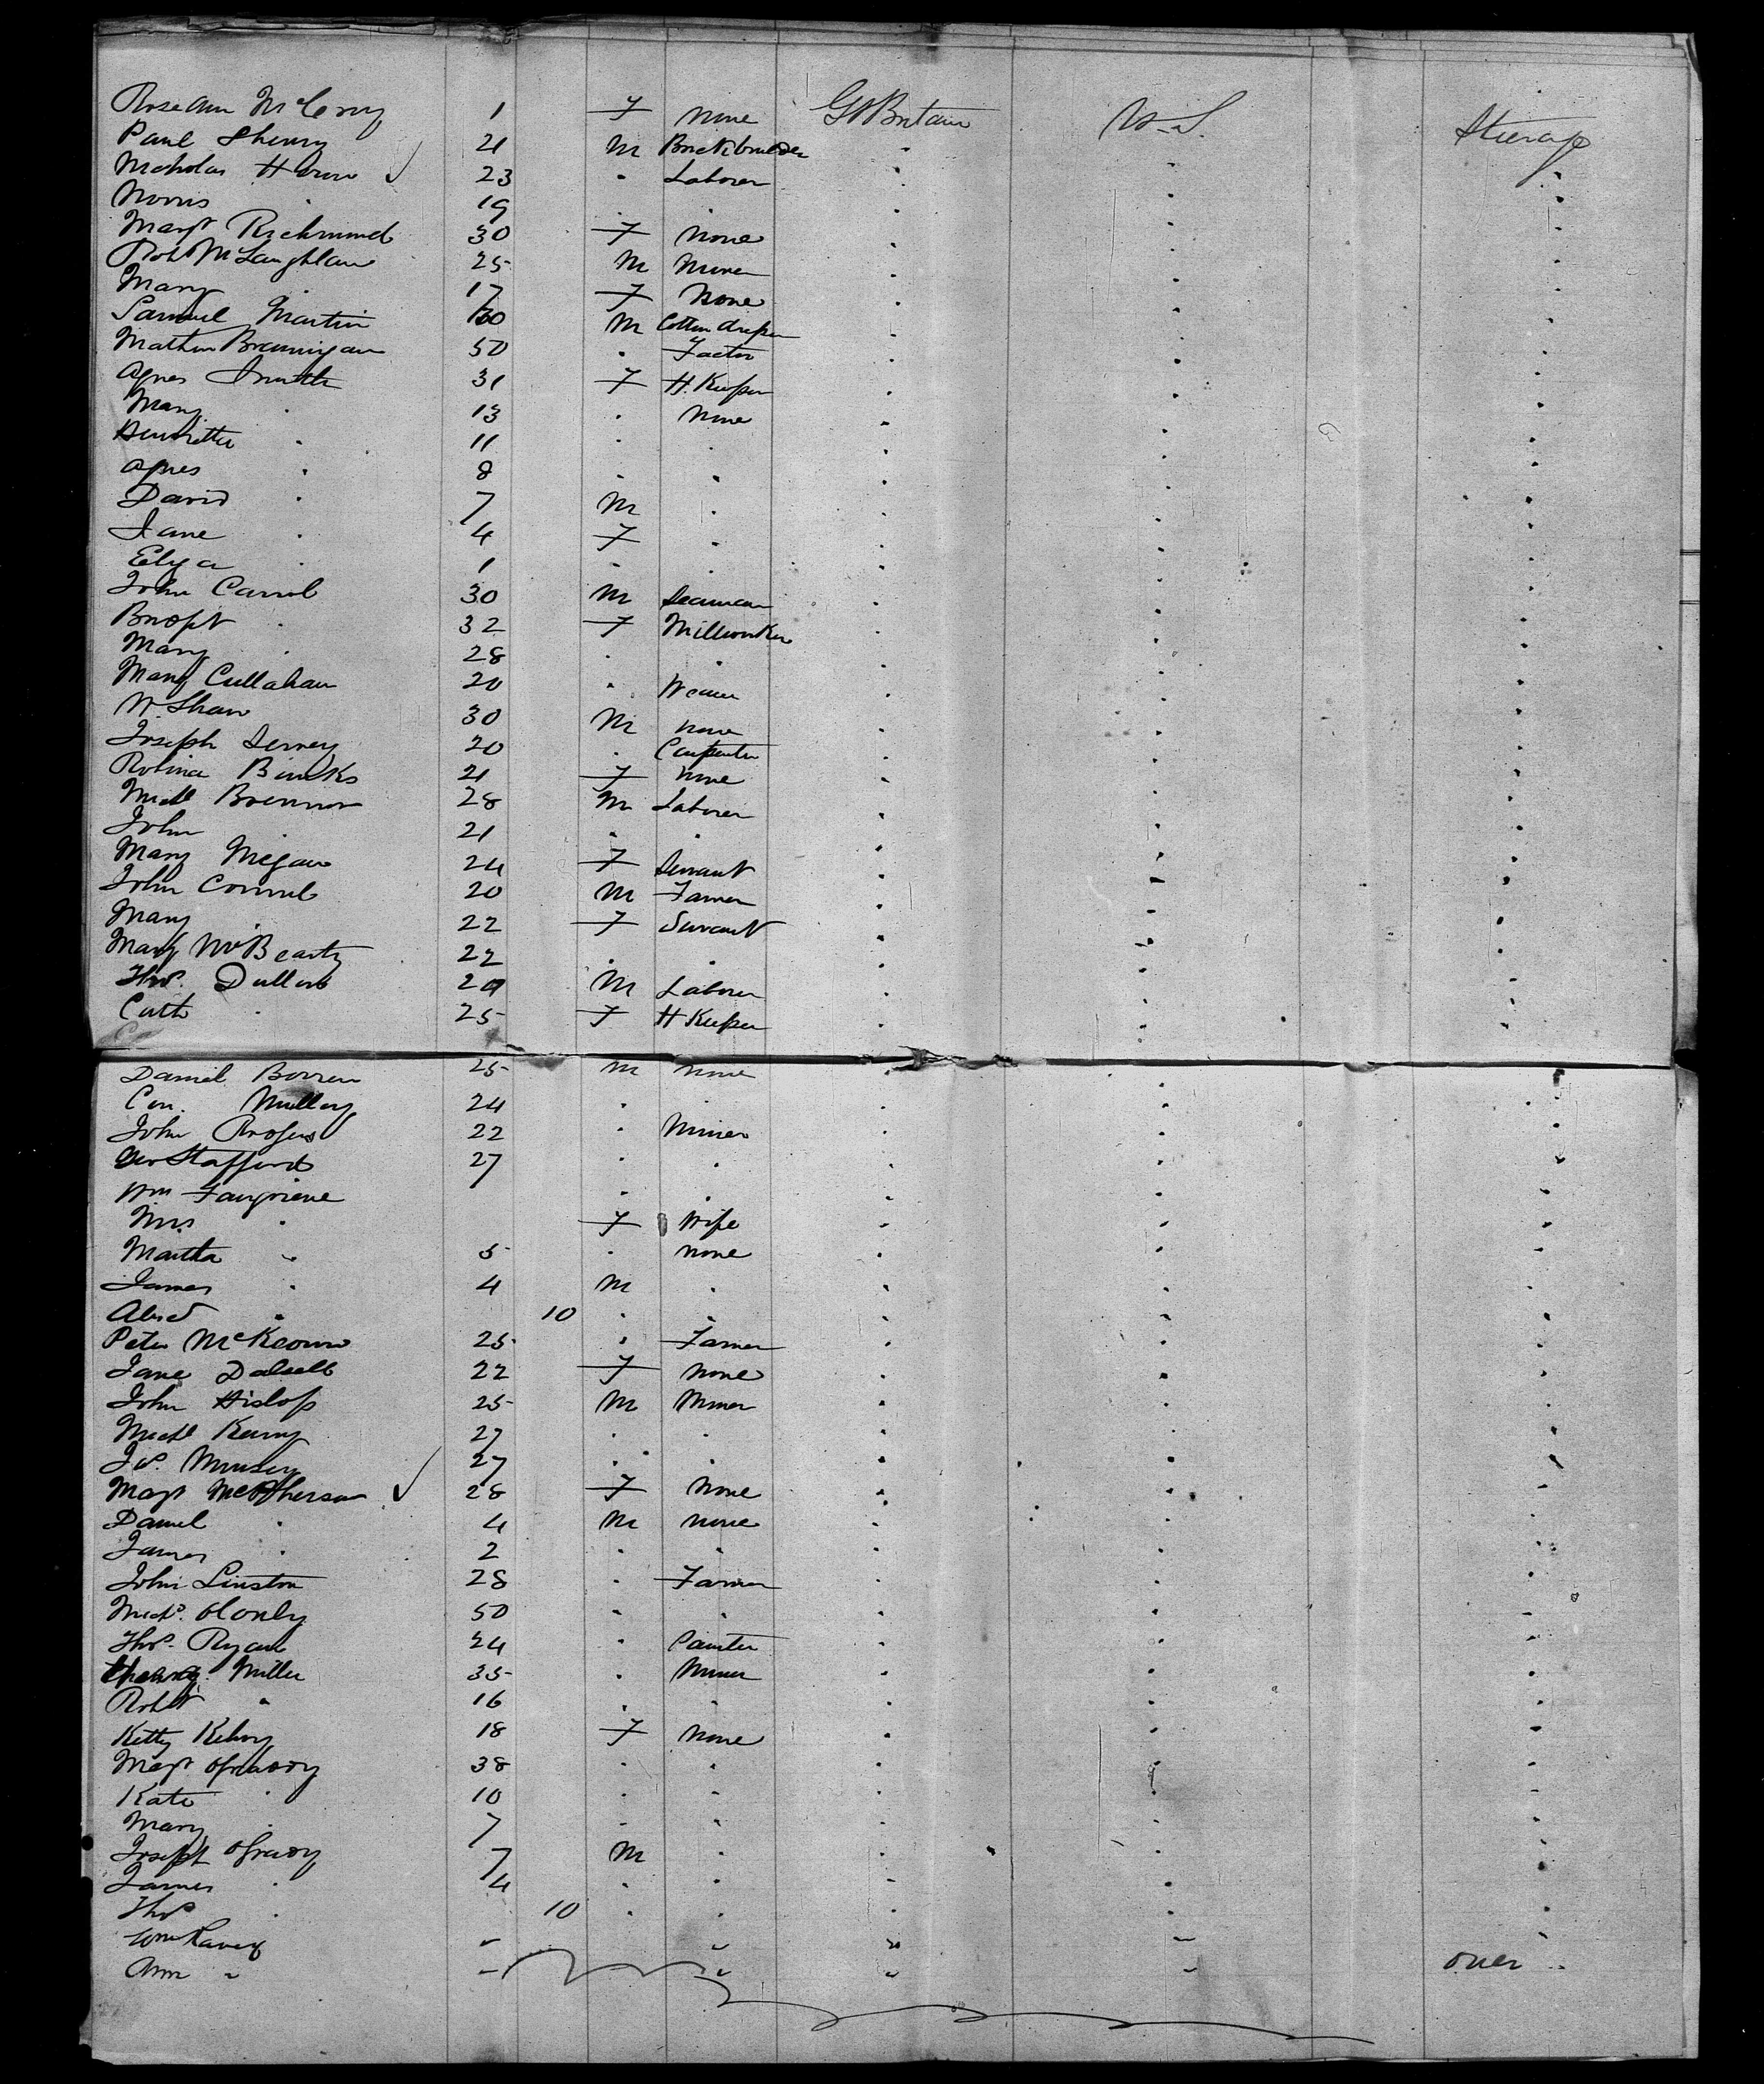 Rose Ann McCrory 1 F None Gt Britain U.S. Steerage
Paul Sherry 21 M Brickbuilder "
Nicholas Heron ✓ 23 " Laborer
Norris " 19 " "
Margt Richmond 30 F None
Robt McLaughlan 25 M Miner
Mary " 17 F None
Samuel Martin 30 M Cotton draper
Mathew Brannigan 50 " Factor
Agnes Smith 31 F H. Keeper
Mary " 13 " None
Henrietta " 11 " "
Agnes " 8 " "
David " 7 M "
Jane " 4 F "
Eliza " 1 " "
John Carrol 30 M Seaman
Bridgt " 32 F Millworker
Mary " 28 " "
Mary Cullahan 20 " Weaver
W. Shaw 30 M None
Joseph 20 " Carpenter
Robina Binks 21 F None
Michl Brennan 28 M Laborer
John " 21 " "
Mary Megaw 24 F Servant
John Connel 20 M Farmer
Mary " 22 F Servant
Mary McBearty 22 " "
Thos. 29 M Laborer
Cath " 25 F H Keeper
Daniel Borren 25 M None
Con. Mullory 24 " "
John Rogers 22 " Miner
Geo Stafford 27 " "
Wm Fairgrieve " "
Mrs " F Wife
Martha " 5 " None
James " 4 M "
Alexd " 10 " "
Peter McKeown 25 " Farmer
Jane Dalzell 22 F None
John Hislop 25 M Miner
Michl 27 " "
Jos. 27 " "
Margt McPherson ✓ 28 F None
Daniel " 4 M None
James " 2 " "
John Linston 28 " Farmer
Michl. 50 " "
Thos. Ryan 24 " Painter
Miller 35 " Miner
Robt " 16 " "
Kitty 18 F None
Margt Ogrady 38 " "
Kate " 10 " "
Mary " 7 " "
Joseph Ogrady 7 M "
James " 4 " "
Thos " 10 " "
Wm " " " "
Ann " " " " " over